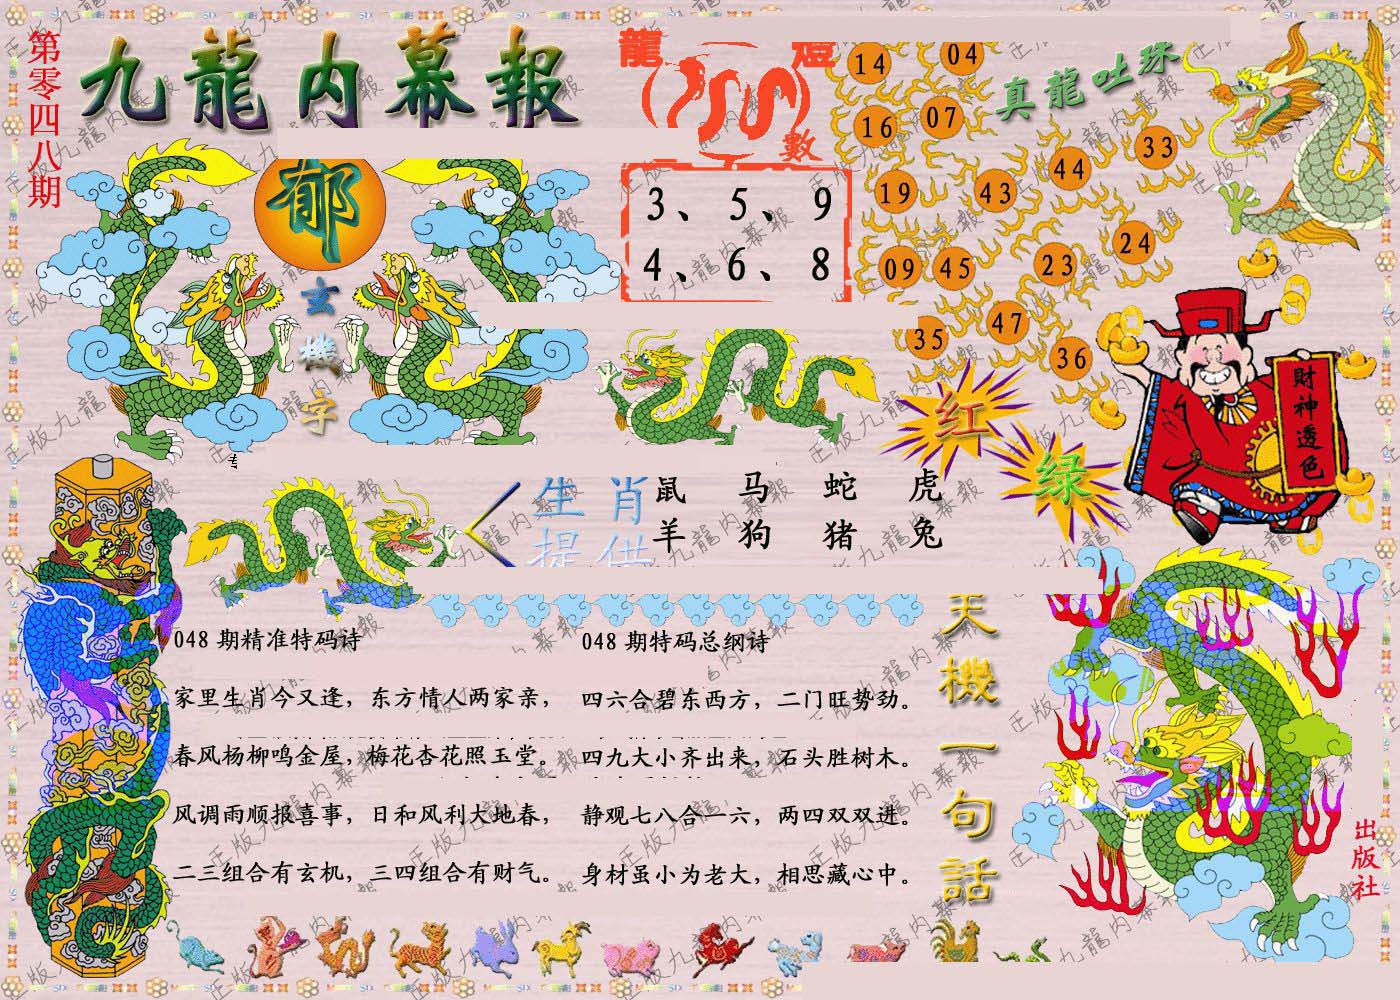 第零四八期
九龍内幕報
龍燈
數
3、5、9
4、6、8
14
04
16
07
19
43
44
33
09
45
23
24
35
47
36
真龍吐珠
郁
玄機字
红
绿
財神透色
生肖
提供
鼠 马 蛇 虎
羊 狗 猪 兔
048 期精准特码诗
家里生肖今又逢，东方情人两家亲，
春风杨柳鸣金屋，梅花杏花照玉堂。
风调雨顺报喜事，日和风利大地春，
二三组合有玄机，三四组合有财气。
048 期特码总纲诗
四六合碧东西方，二门旺势劲。
四九大小齐出来，石头胜树木。
静观七八合一六，两四双双进。
身材虽小为老大，相思藏心中。
天機一句話
出版社
正版九龍内幕報